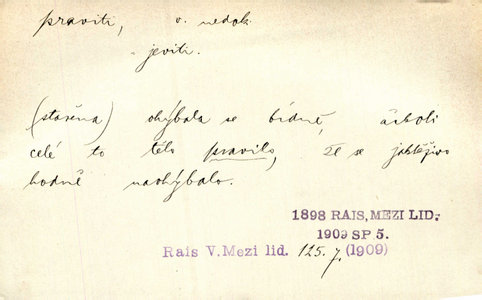 praviti, v. nedok.
jeviti.
(stařena) ohýbala se bídně, ačkoli
celé to tělo pravilo, že se jakživo
hodně naohýbalo.
1898 RAIS, MEZI LID.-
1909 SP 5.
Rais V. Mezi lid. 125. (1909)